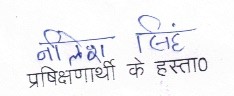 नीलेश सिंह
प्रषिक्षणार्थी के हस्ता०